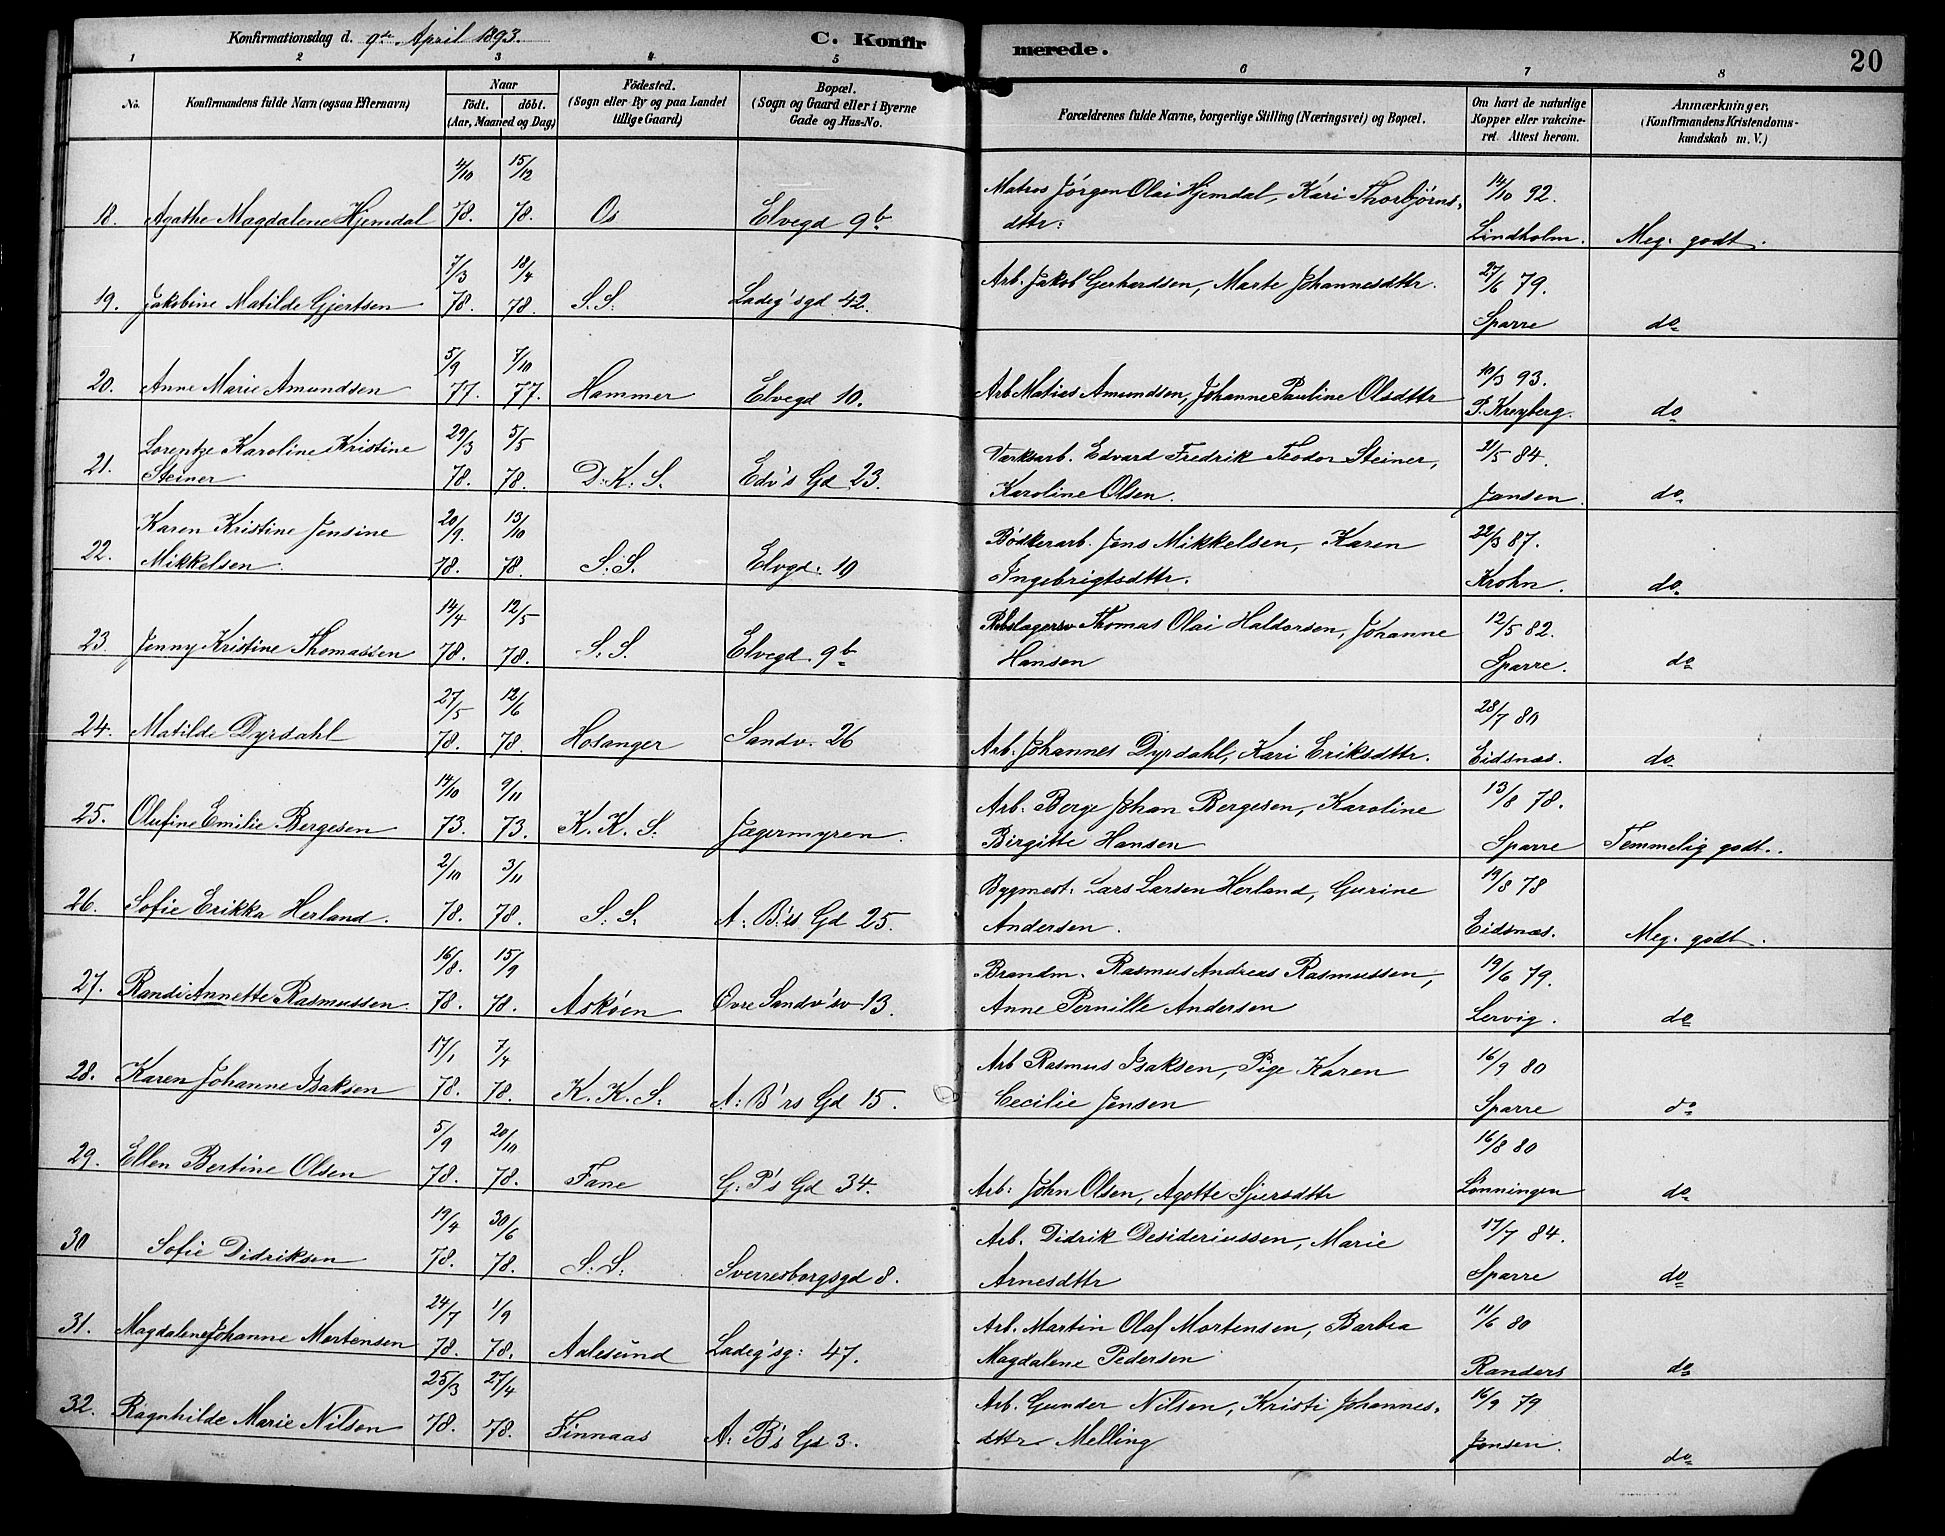 Konfirmationsdag d. 9de April 1893. C. Konfirmerede. 20
1 2 3 4 5 6 7 8
No. Konfirmandens fulde Navn (ogsaa Efternavn) Naar födt. döbt. (Aar, Maaned og Dag) Födested. (Sogn eller By og paa Landet tillige Gaard) Bopæl. (Sogn og Gaard eller i Byerne Gade og Hus-No. Forældrenes fulde Navne, borgerlige Stilling (Næringsvei) og Bopæl. Om havt de naturlige Kopper eller vakcineret. Attest herom. Anmærkninger, (Konfirmandens Kristendomskundskab m. V.)
18. Agathe Magdalene Hjemdal 4/10 78. 15/12 78. Os Elvegd 9b Matros Jørgen Olai Hjemdal, Kari Thorbjørns-
dttr: 14/10 92. Lindholm. Meg. godt.
19. Jakobine Matilde Gjertsen 7/3 78. 18/4 78. S.S. Ladeg'sgd 42. Arb. Jakob Gerhardsen, Marte Johannesdttr. 27/6 79. Sparre do
20. Anne Marie Amundsen 5/9 77. 7/10 77. Hammer Elvegd 10. Arb. Matias Amundsen, Johanne Pauline Olsdttr 10/3 93. P. Kreyberg. do
21. Lorentze Karoline Kristine
Steiner 29/3 78. 5/5 78. D.K.S. Edv's Gd 23. Værksarb. Edvard Fredrik Teodor Steiner,
Karoline Olsen. 21/5 84. Jansen. do
22. Karen Kristine Jensine
Mikkelsen. 20/9. 78. 13/10 78. S.S. Elvgd. 10 Bødkerarb. Jens Mikkelsen, Karen
Ingebrigtsdttr. 22/3 87. Krohn. do
23. Jenny Kristine Thomassen 14/4 78. 12/5 78. S.S. Elvegd. 9b Thomas Olai Haldorsen, Johanne
Hansen 12/5 82. Sparre. do
24. Matilde Dyrdahl 27/5 78. 12/6 78. Hosanger Sandv. 26 Arb. Johannes Dyrdahl, Kari Eriksdttr. 28/7 80 Eidsnæs. do
25. Olufine Emilie Bergesen 14/10 73. 9/11 73. K.K.S. Jægermyren. Arb. Berge Johan Bergesen, Karoline
Birgitte Hansen 13/8 78. Sparre Temmelig godt.
26. Sofie Erikka Herland. 2/10 78. 3/11 78. S.S. A: B'rs Gd 25. Bygmest. Lars Larsen Herland, Gurine
Andersen. 19/8 78 Eidsnæs. Meg. godt.
27. Randi Annette Rasmussen. 16/8. 78. 15/9 78. Askøen Øvre Sandv'sv 13. Brandm. Rasmus Andreas Rasmussen,
Anne Pernille Andersen 19/6 79. Lervig. do
28. Karen Johanne Isaksen 17/1 78. 7/4 78. K.K.S. A: B'rs Gd 15. Arb Rasmus Isaksen, Pige Karen
Cecilie Jensen 16/9 80 Sparre do
29. Ellen Bertine Olsen 5/9 78. 20/10 78. Fane G: P's Gd 34. Arb: John Olsen, Agotte Sjursdttr 16/8 80 Lønningen do
30 Sofie Didriksen 19/4 78. 30/6 78. S.S. Sverresborgsgd 8. Arb. Didrik Desideriussen, Marie
Arnesdttr 17/7 84. Sparre do
31. Magdalene Johanne Mortensen 24/7 78. 1/9 78. Aalesund Ladeg'sg: 47. Arb. Martin Olaf Mortensen, Barbra
Magdalene Pedersen 11/6 80 Randers do
32. Ragnhilde Marie Nilsen 25/3 78. 27/4 78. Finnaas A: B's Gd 3. Arb. Gunder Nilsen, Kristi Johannes-
dttr Melling 16/9 79 Jensen. do